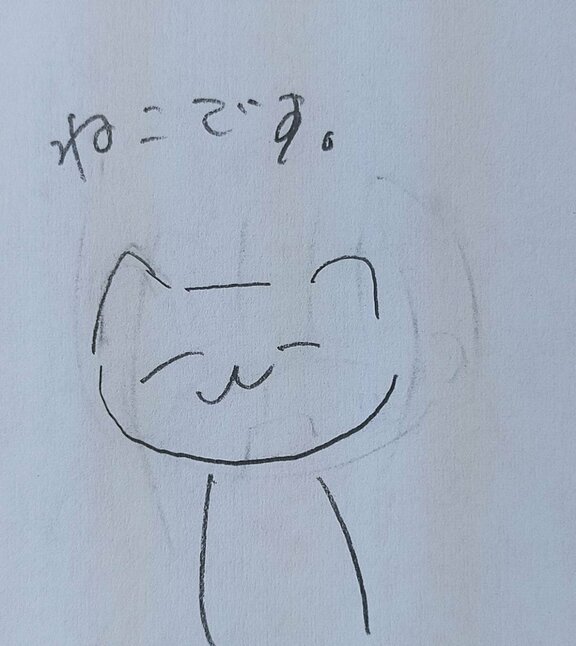 ねこです。